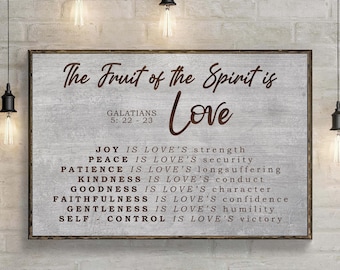 The Fruit of the Spirit is
GALATIANS
5: 22 - 23
Love
JOY IS LOVE'S strength
PEACE IS LOVE'S security
PATIENCE IS LOVE'S longsuffering
KINDNESS IS LOVE'S conduct
GOODNESS IS LOVE'S character
FAITHFULNESS IS LOVE'S confidence
GENTLENESS IS LOVE'S humility
SELF - CONTROL IS LOVE'S victory